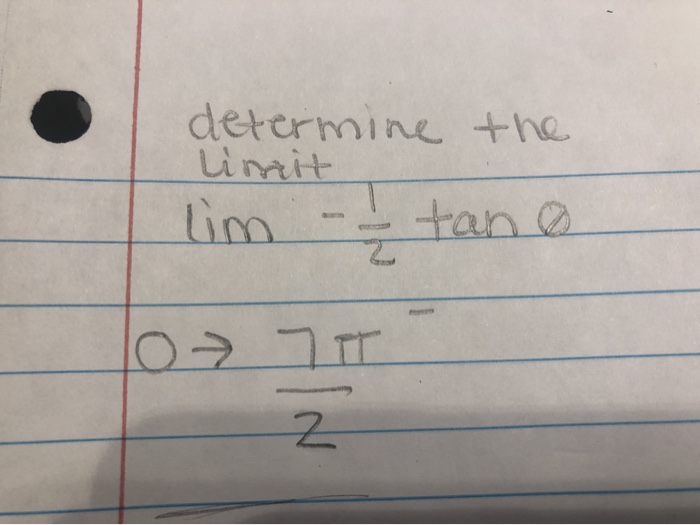 determine the
limit
lim -1/2 tan Ø
0→ 7π⁻
2